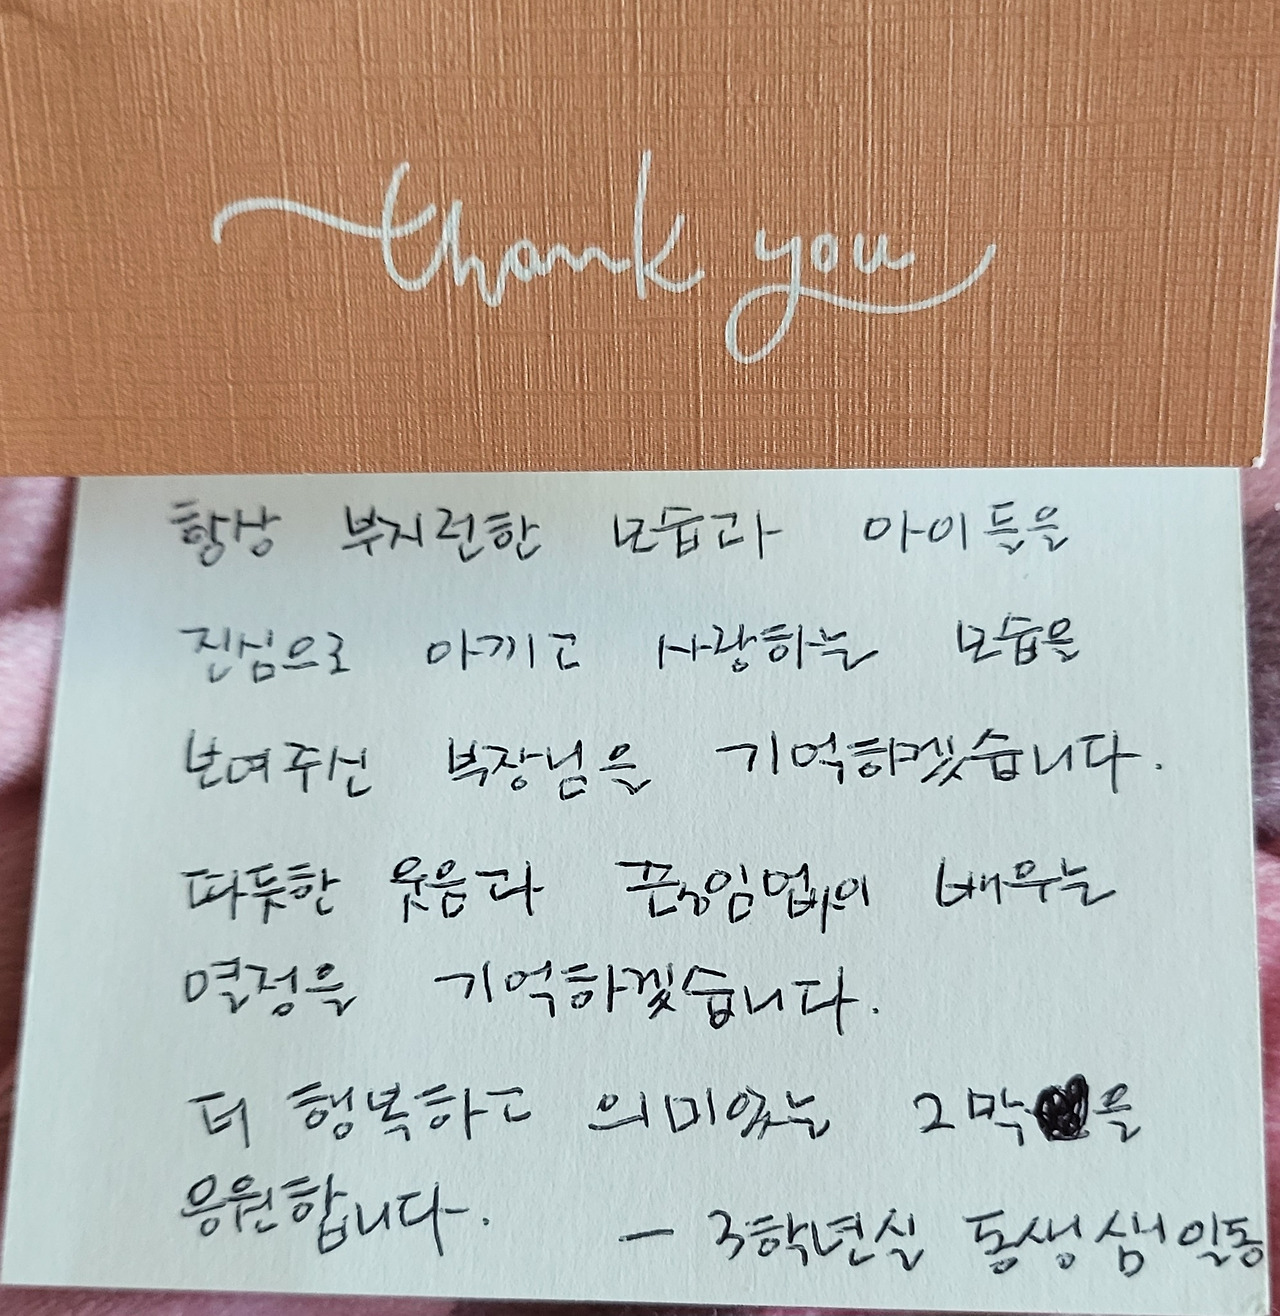 thank you
항상 부지런한 모습과 아이들을
진심으로 아끼고 사랑하는 모습을
보여주신 부장님을 기억하겠습니다.
따듯한 웃음과 끊임없이 배우는
열정을 기억하겠습니다.
더 행복하고 의미있는 2막을
응원합니다. - 3학년실 동생샘일동